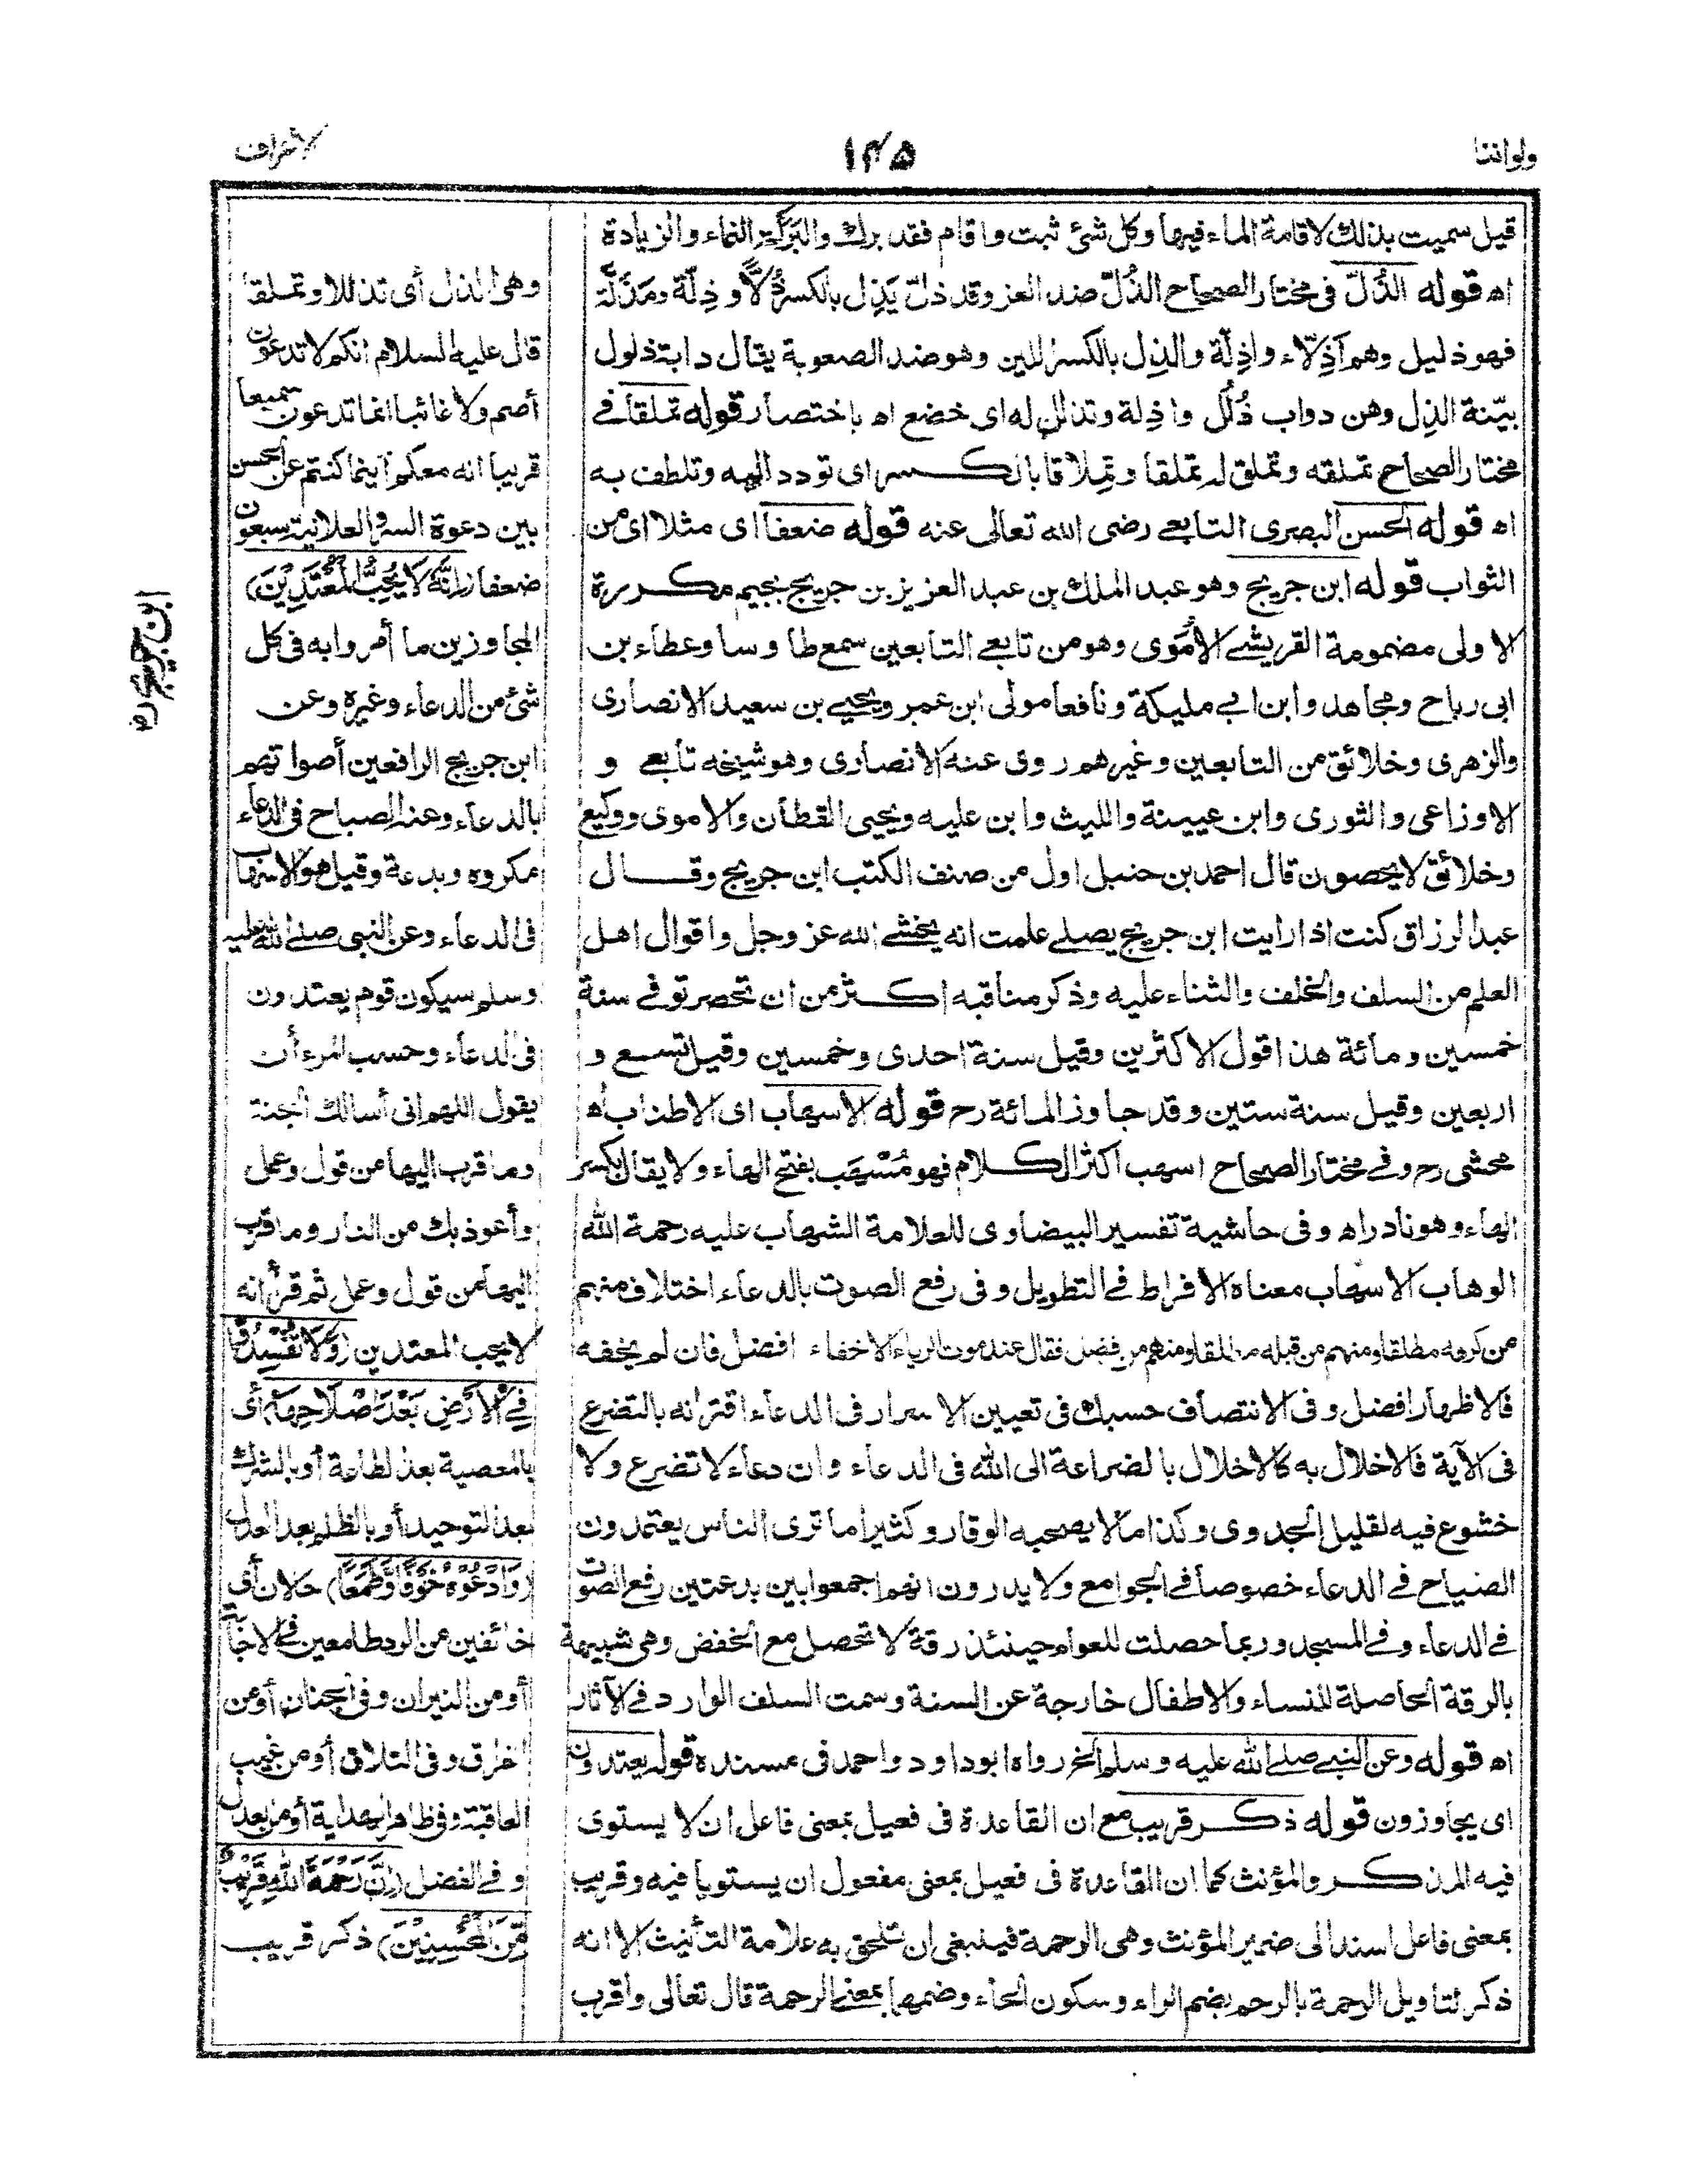 ولواننا
١٣٥
الاعراف
قيل سميت بذلك لاقامة الماء فيها وكل شئ ثبت واقام فقد برك والبَرَكة النماء والزيادة
اه قوله الذُلّ فى مختار الصحاح الذُلّ ضد العز وقد ذلّ يَذِل بالكسر ذُلًّا و ذِلّة ومَذَلّة
فهو ذليل وهم اَذِلّاء واذِلّة والذِل بالكسر اللين وهو ضد الصعوبة يقال دابة ذلول
بيّنة الذِل وهن دواب ذُلُل واذِلة وتذلل له اى خضع اه باختصار قوله تملقا فے
مختار الصحاح تملقه وتملق له تملقا وتِملاقا بالكسر اى تودد اليه وتلطف به
اه قوله الحسن البصرى التابعے رضى الله تعالى عنه قوله ضعفا اى مثلا اى من
الثواب قوله ابن جريج وهو عبد الملك بن عبد العزيز بن جريج بجيم مكررة
الاولى مضمومة القريشے الأُمَوى وهو من تابعے التابعين سمع طاوسا وعطاء بن
ابى رباح ومجاهد وابن ابے مليكة ونافعا مولى ابن عمر ويحيے بن سعيد الانصارى
والزهرى وخلائق من التابعين وغيرهم روى عنه الانصارى وهو شيخه تابعے و
الاوزاعى والثورى وابن عيينة والليث وابن عليه ويحيى القطان والاموى ووكيع
وخلائق لا يحصون قال احمد بن حنبل اول من صنف الكتب ابن جريج وقال
عبد الرزاق كنت اذا رايت ابن جريج يصلے علمت انه يخشے الله عز وجل واقوال اهل
العلم من السلف والخلف والثناء عليه وذكر مناقبه اكثر من ان تحصر توفے سنة
خمسين ومائة هذا قول الاكثرين وقيل سنة احدى وخمسين وقيل تسع و
اربعين وقيل سنة ستين وقد جاوز المائة رح قوله الاسهاب اى الاطناب اه
محشى رح وفے مختار الصحاح اسهب اكثر الكلام فهو مُسْهَب بفتح الهاء ولا يقال بكسر
الهاء وهو نادر اه وفى حاشية تفسير البيضاوى للعلامة الشهاب عليه رحمة الله
الوهاب الاسهاب معناه الافراط فے التطويل وفى رفع الصوت بالدعاء اختلاف منهم
من كرهه مطلقا ومنهم من قبله مطلقا ومنهم من فضل فقال عند موت الرياء الاخفاء افضل فان لم يخفه
فالاظهار افضل وفى الانتصاف حسبك فى تعيين الاسرار فى الدعاء اقترانه بالتضرع
فى الآية فالاخلال به كالاخلال بالضراعة الى الله فى الدعاء وان دعاء لا تضرع ولا
خشوع فيه لقليل الجدوى وكذا ما لا يصحبه الوقار وكثيرا ما ترى الناس يعتمدون
الصياح فے الدعاء خصوصا فے الجوامع ولا يدرون انهم اجمعوا بين بدعتين رفع الصوت
فے الدعاء وفے المسجد وربما حصلت للعوام حينئذ رقة لا تحصل مع الخفض وهى شبيهة
بالرقة الحاصلة للنساء والاطفال خارجة عن السنة وسمت السلف الوارد فے الآثار
اه قوله وعن النبے صلے الله عليه وسلم الخ رواه ابو داود واحمد فى مسنده قوله يعتدون
اى يجاوزون قوله ذكر قريب مع ان القاعدة فى فعيل بمعنى فاعل ان لا يستوى
فيه المذكر والمؤنث كما ان القاعدة فى فعيل بمعنى مفعول ان يستويا فيه وقريب
بمعنى فاعل اسند الى ضمير المؤنث وهى الرحمة فينبغى ان تلحق به علامة التأنيث الا انه
ذكر لتاويل الرحمة بالرحم بضم الراء وسكون الحاء وضمها بمعنى الرحمة قال تعالى واقرب
وهى الذل أى تذللا وتملقا
قال عليه السلام انكم لا تدعون
أصم ولا غائبا انما تدعون سميعا
قريبا انه معكم أينما كنتم عن الحسن
بين دعوة السر والعلانية سبعون
ضعفا (اِنَّهٗ لَا يُحِبُّ الْمُعْتَدِيْنَ)
المجاوزين ما أمروا به فى كل
شئ من الدعاء وغيره وعن
ابن جريج الرافعين أصواتهم
بالدعاء وعنه الصياح فى الدعاء
مكروه وبدعة وقيل هو الاسهاب
فى الدعاء وعن النبى صلے الله عليه
وسلم سيكون قوم يعتدون
فى الدعاء وحسب المرء أن
يقول اللهم انى أسالك الجنة
وما قرب اليها من قول وعمل
وأعوذ بك من النار وما قرب
اليها من قول وعمل ثم قرأ انه
لا يحب المعتدين (وَلَا تُفْسِدُوْا
فِے الْاَرْضِ بَعْدَ اِصْلَاحِهَا) أى
بالمعصية بعد الطاعة أو بالشرك
بعد التوحيد أو بالظلم بعد العدل
(وَادْعُوْهُ خَوْفًا وَّطَمَعًا) حالان أى
خائفين من الرد طامعين فے الاجابة
أو من النيران وفى الجنان أو من
الفراق وفى التلاق أو من غيب
العاقبة وفى ظاهر الهداية أو من العدل
وفے الفضل (اِنَّ رَحْمَةَ اللّٰهِ قَرِيْبٌ
مِّنَ الْمُحْسِنِيْنَ) ذكر قريب
ابن جريج رح